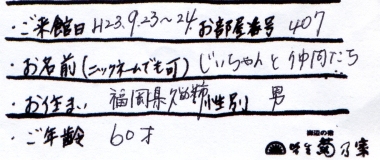 ・ご来館日 H23.9.23〜24 お部屋番号 407
・お名前(ニックネームでも可) じいちゃんと仲間たち
・お住まい 福岡県久留米市 性別 男
・ご年齢 60才
海辺の宿